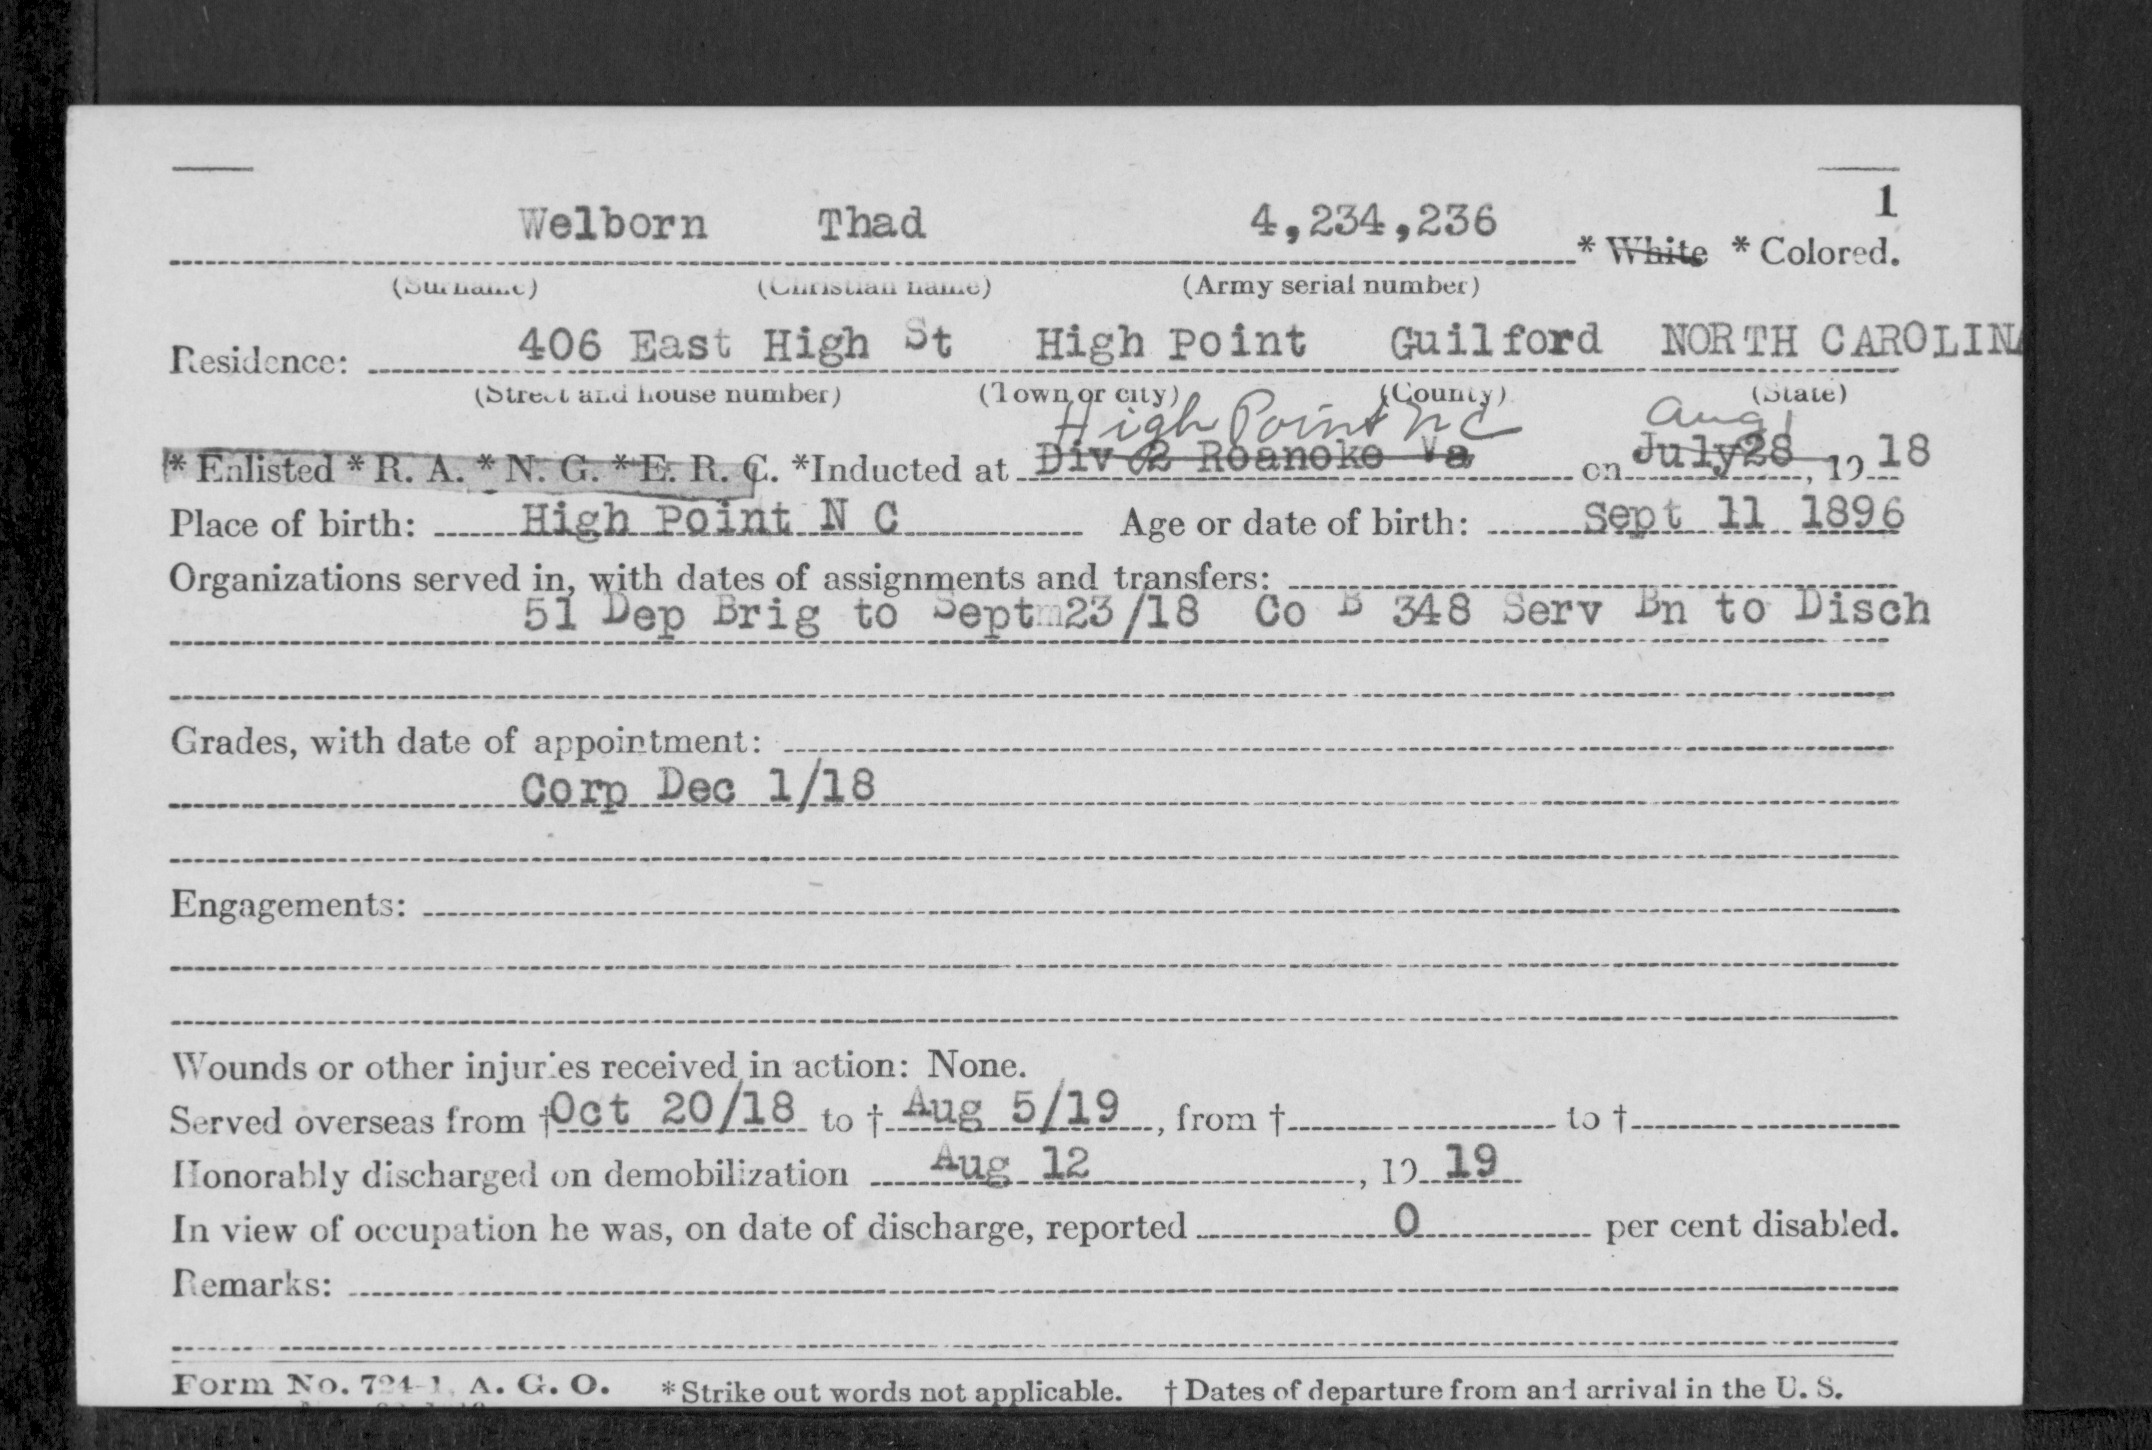 1
Welborn Thad 4,234,236 * White * Colored.
(Surname) (Christian name) (Army serial number)
Residence: 406 East High St High Point Guilford NORTH CAROLINA
(Street and house number) (Town or city) (County) (State)
High Point NC Aug 1
* Enlisted * R. A. * N. G. * E. R. C. *Inducted at Div 2 Roanoke Va on July 28, 19 18
Place of birth: High Point N C Age or date of birth: Sept 11 1896
Organizations served in, with dates of assignments and transfers:
51 Dep Brig to Septm23/18 Co B 348 Serv Bn to Disch
Grades, with date of appointment:
Corp Dec 1/18
Engagements:
Wounds or other injuries received in action: None.
Served overseas from † Oct 20/18 to † Aug 5/19, from † to †
Honorably discharged on demobilization Aug 12, 19 19
In view of occupation he was, on date of discharge, reported 0 per cent disabled.
Remarks:
Form No. 724-1, A. G. O. * Strike out words not applicable. † Dates of departure from and arrival in the U. S.